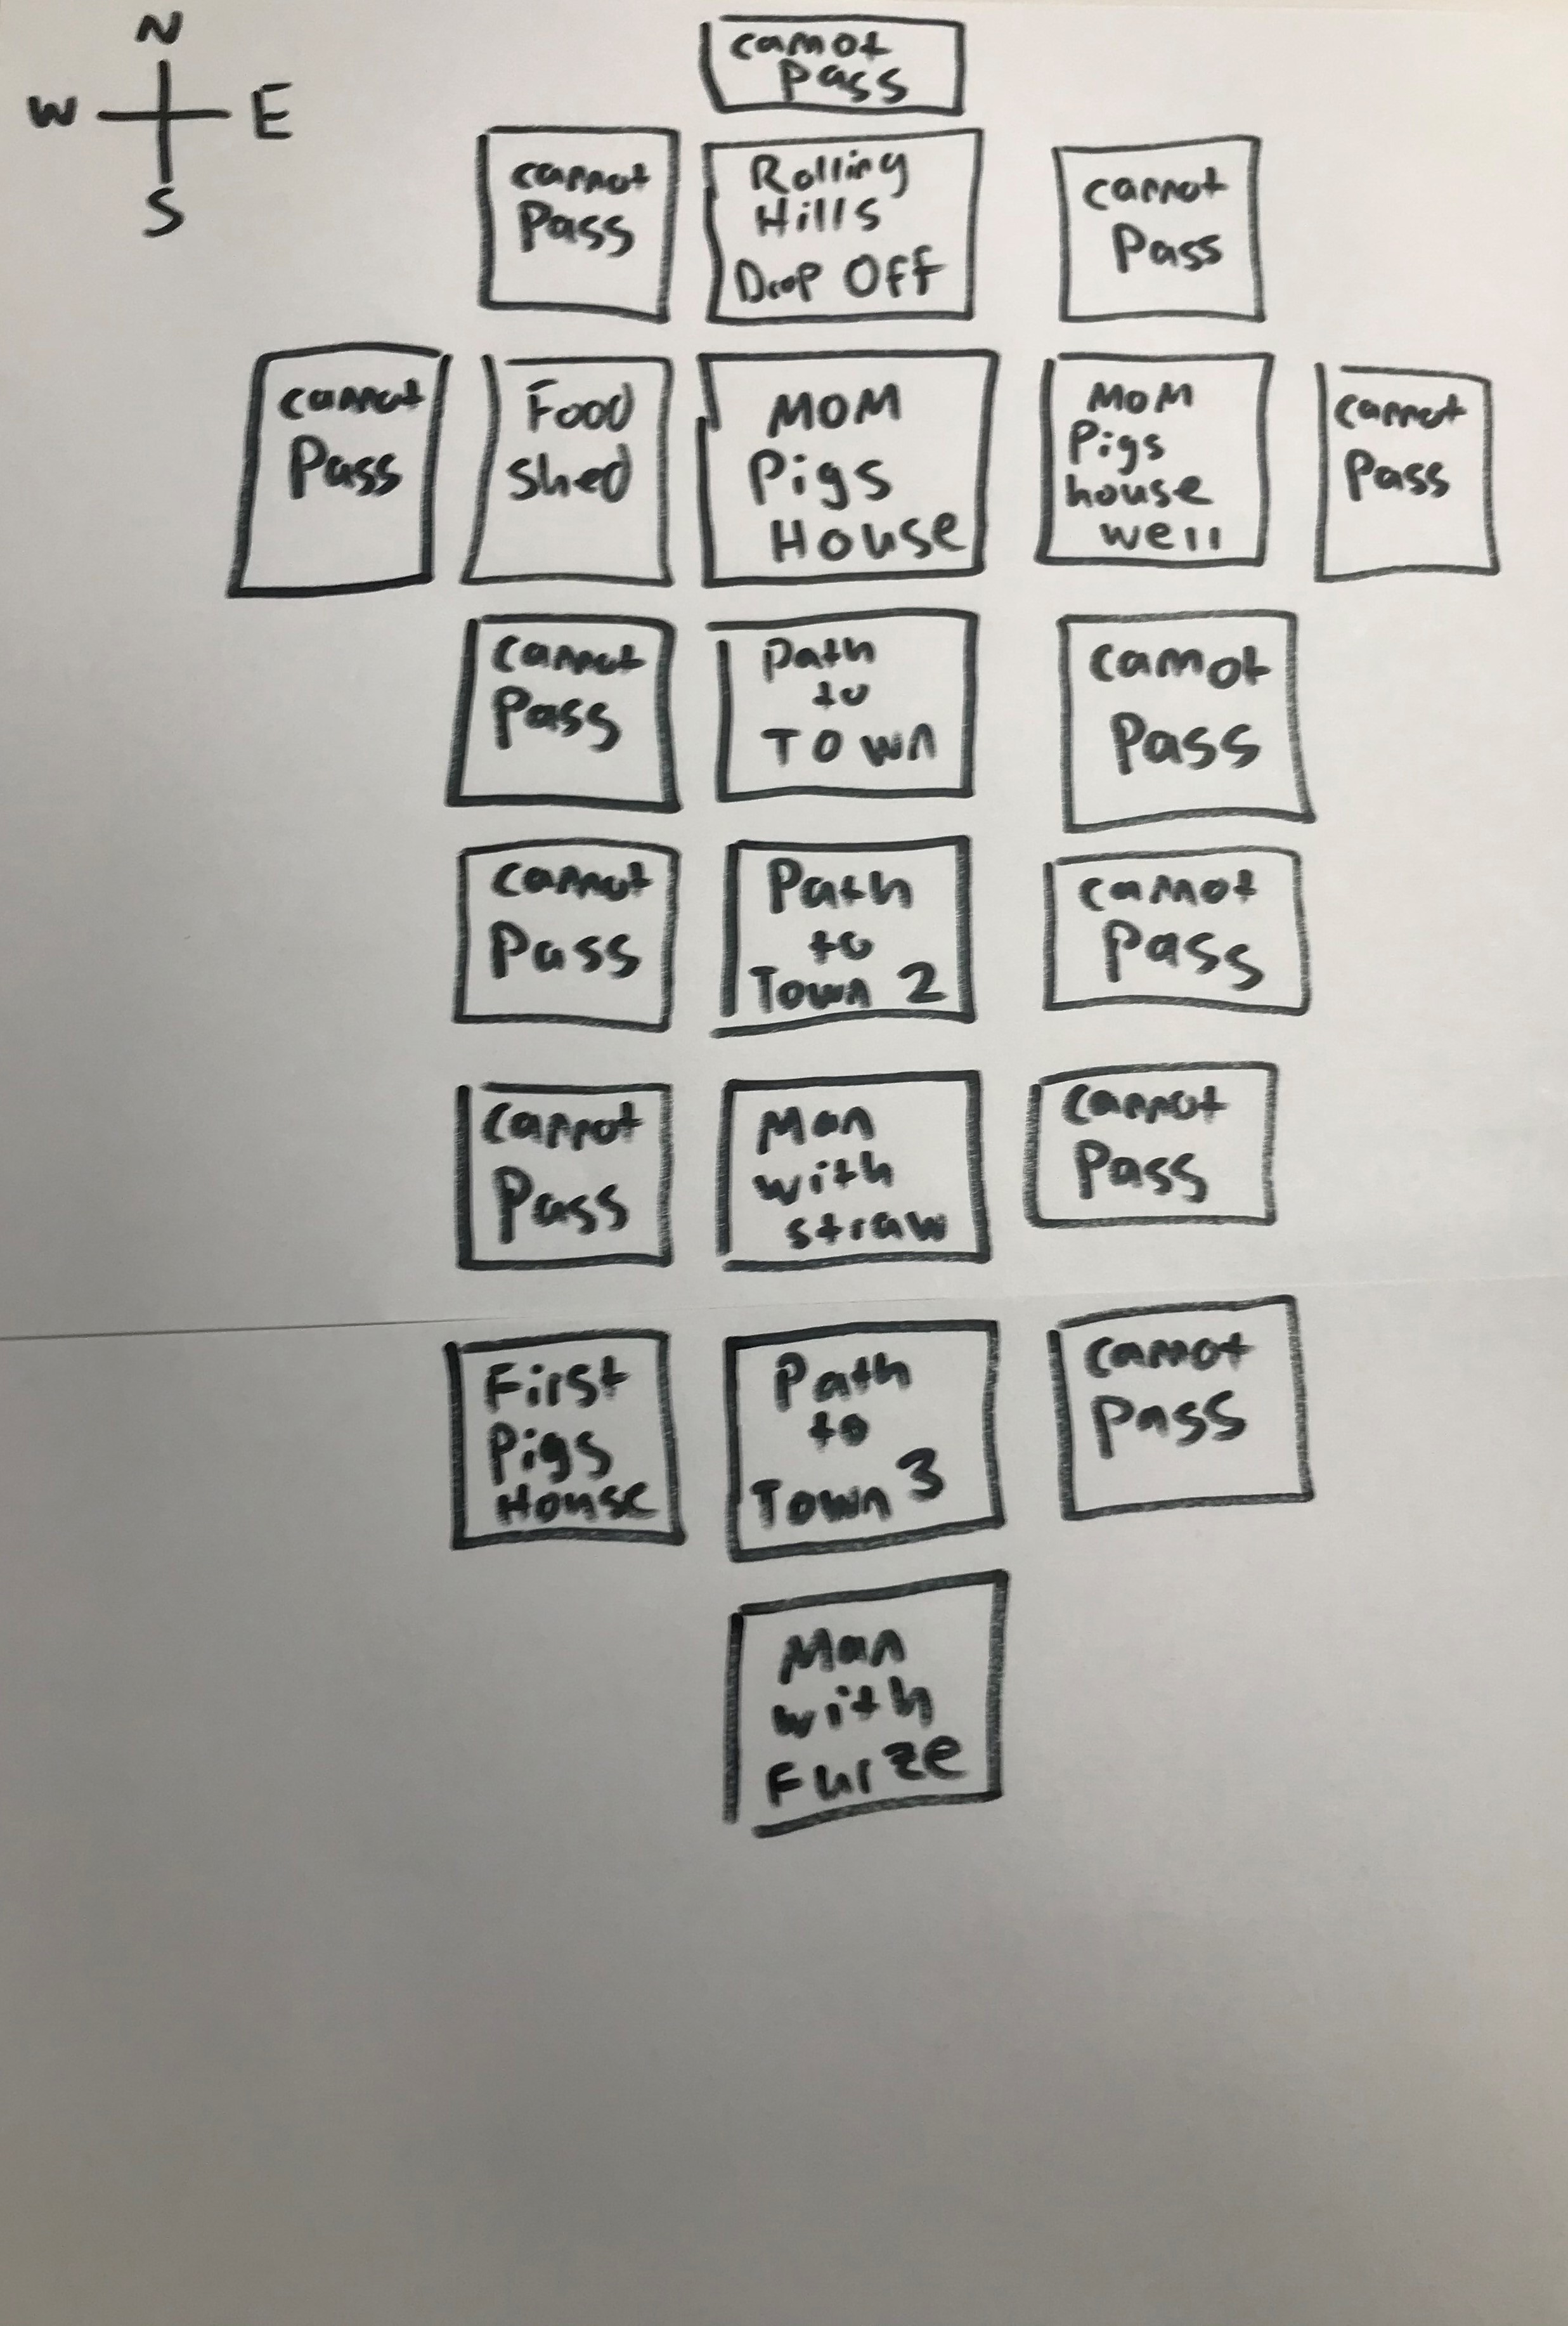 N
W E
S
cannot
Pass
cannot
Pass
Rolling
Hills
Drop Off
cannot
Pass
cannot
Pass
Food
Shed
MOM
Pigs
House
MOM
Pigs
house
well
cannot
Pass
cannot
Pass
Path
to
TOWN
cannot
Pass
cannot
Pass
Path
to
Town 2
cannot
Pass
cannot
Pass
Man
with
straw
cannot
Pass
First
Pigs
House
Path
to
Town 3
cannot
Pass
Man
with
Furze